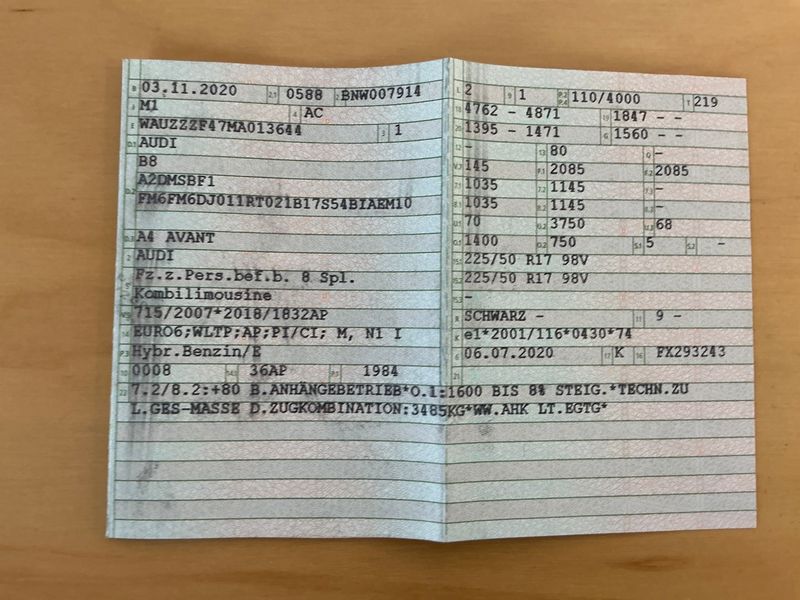 B 03.11.2020 2.1 0588 2.2 BNW007914
J M1 4 AC
E WAUZZZF47MA013644 3 1
D.1 AUDI
B8
A2DMSBF1
D.2 FM6FM6DJ011RT021B17S54BIAEM10
D.3 A4 AVANT
2 AUDI
5 Fz.z.Pers.bef.b. 8 Spl.
Kombilimousine
V.9 715/2007*2018/1832AP
14 EURO6;WLTP;AP;PI/CI; M, N1 I
P.3 Hybr.Benzin/E
10 0008 14.1 36AP P.1 1984
22 7.2/8.2:+80 B.ANHÄNGEBETRIEB*O.1:1600 BIS 8% STEIG.*TECHN.ZU
L.GES-MASSE D.ZUGKOMBINATION:3485KG*WW.AHK LT.EGTG*
L 2 9 1 P.2 P.4 110/4000 T 219
18 4762 - 4871 19 1847 - -
20 1395 - 1471 G 1560 - -
12 - 13 80 Q -
V.7 145 F.1 2085 F.2 2085
7.1 1035 7.2 1145 7.3 -
8.1 1035 8.2 1145 8.3 -
U.1 70 U.2 3750 U.3 68
O.1 1400 O.2 750 S.1 5 S.2 -
15.1 225/50 R17 98V
15.2 225/50 R17 98V
15.3 -
R SCHWARZ - 11 9 -
K e1*2001/116*0430*74
6 06.07.2020 17 K 16 FX293243
21